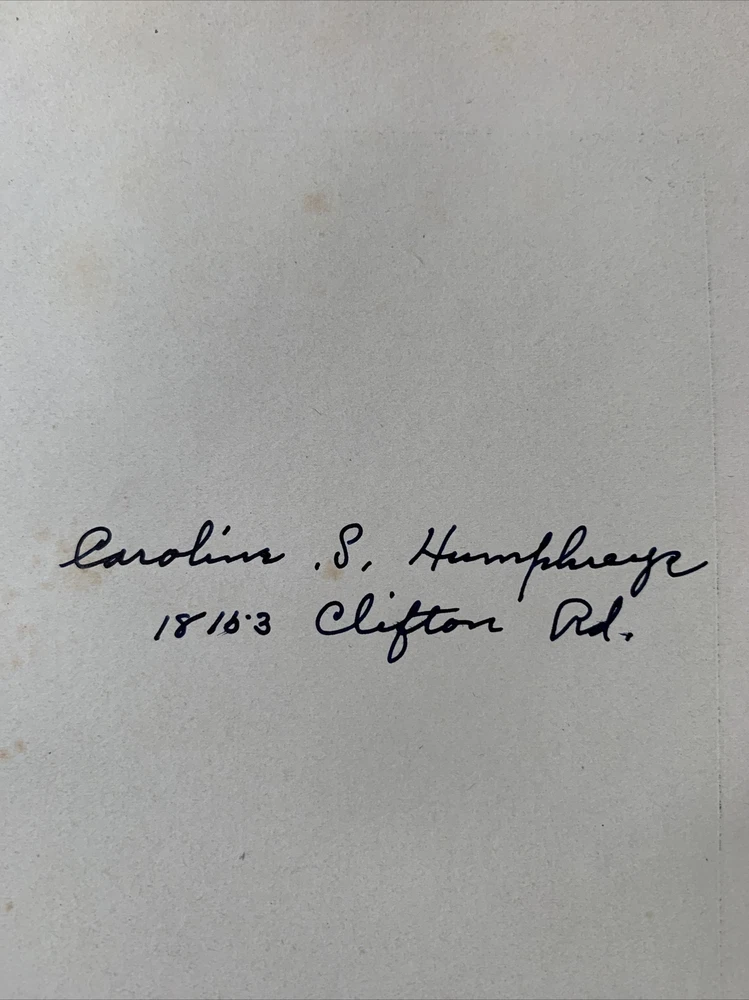 Caroline S. Humphreys
18153 Clifton Rd.